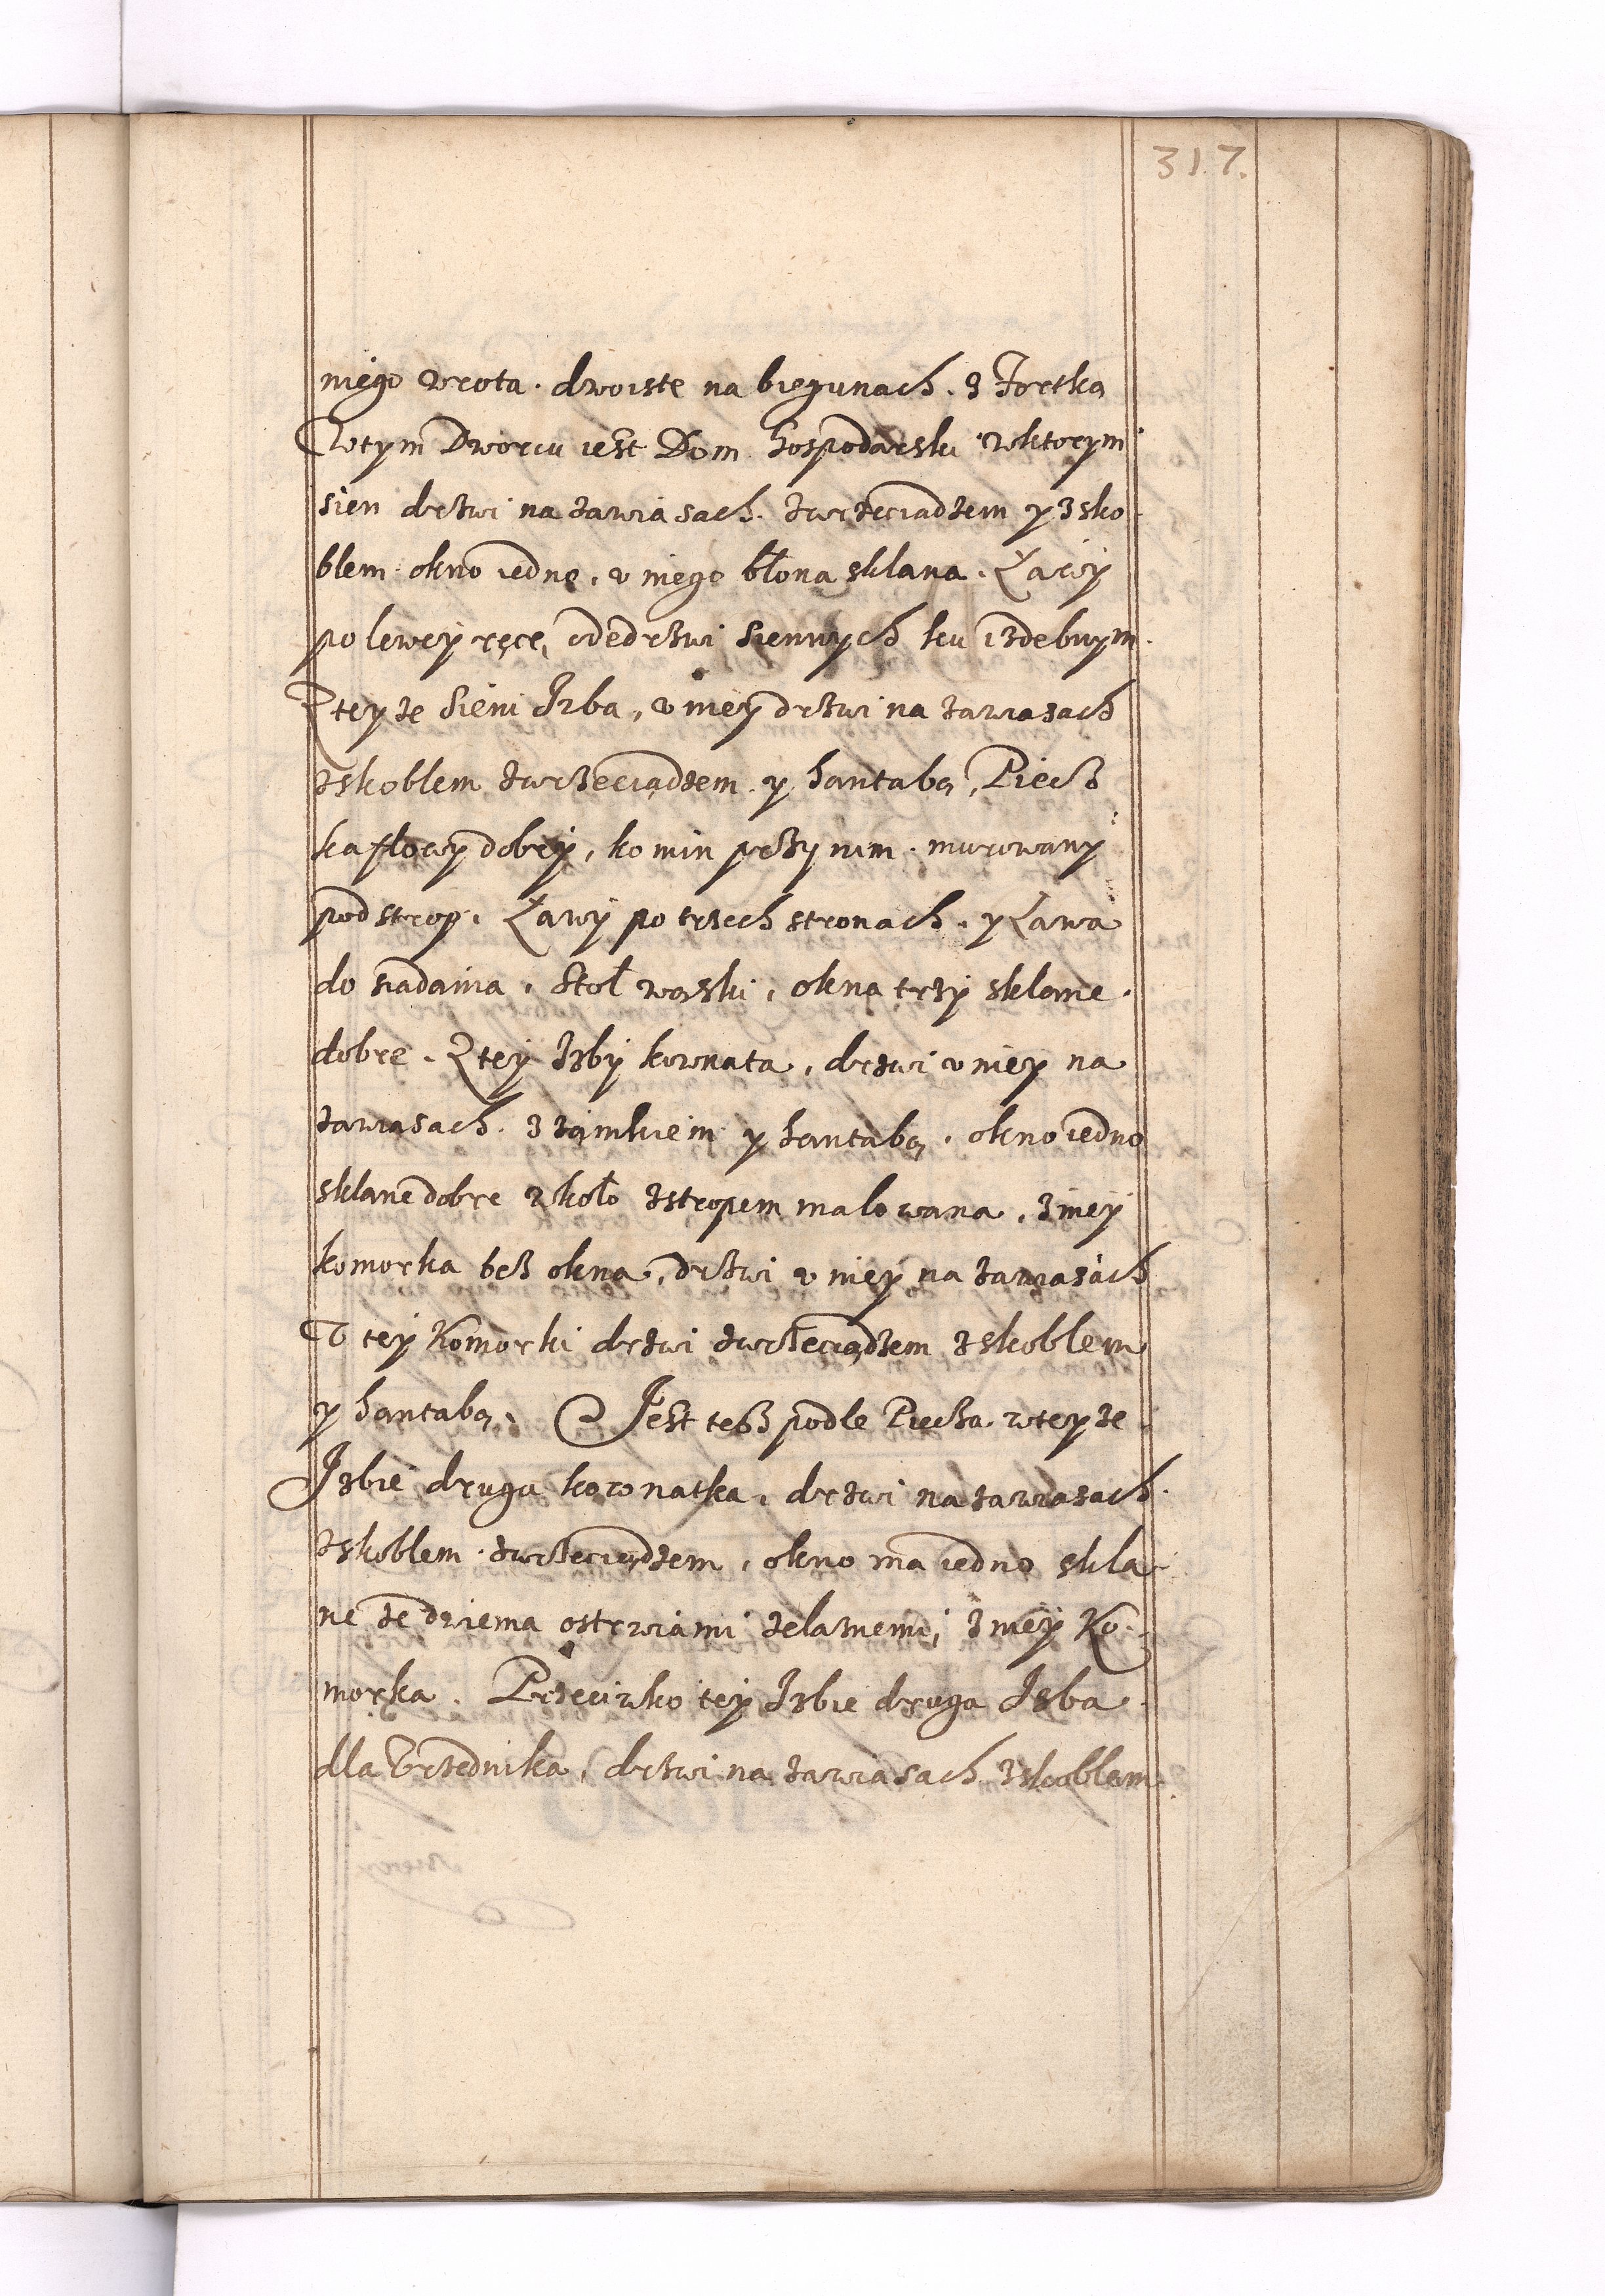 317.
niego wrota. dwoiste na biegunach. z Fortką
Wtym Dworcu iest Dom hospodarski wktorym
sien drzwi na zawiasach. zwrzeciadzem y zsko-
blem okno iedno, v niego błona sklana. Ławy
po lewey ręce, odedrzwi siennych ku izdebnym.
Zteyze Sieni Izba, v niey drzwi na zawiasach
zskoblem zwrzeciądzem y hantabą, Piecz
kaflowy dobry, komin przy nim murowany
pod strop. Ławy po trzech stronach. y Ława
do siadania, Stoł waski, okna trzy sklane
dobre. Ztey Izby komnata, drzwi v niey na
zawiasach. z zamkiem y hantabą. okno iedno
sklane dobre wkoło zstropem malowana, z niey
komorka bez okna, drzwi v niey na zawiasach
V tey Komorki drzwi zwrzeciądzem zskoblem
y hantabą. Jest tesz podle Piecza wteyze
Izbie druga komnatka, drzwi na zawiasach
zskoblem zwrzeciądzem, okno ma iedno skla-
ne ze dwiema ostrwiami zelaznemi, z niey Ko-
morka. Przeciwko tey Izbie druga Izba
dla Vrzednika, drzwi na zawiasach zskoblem